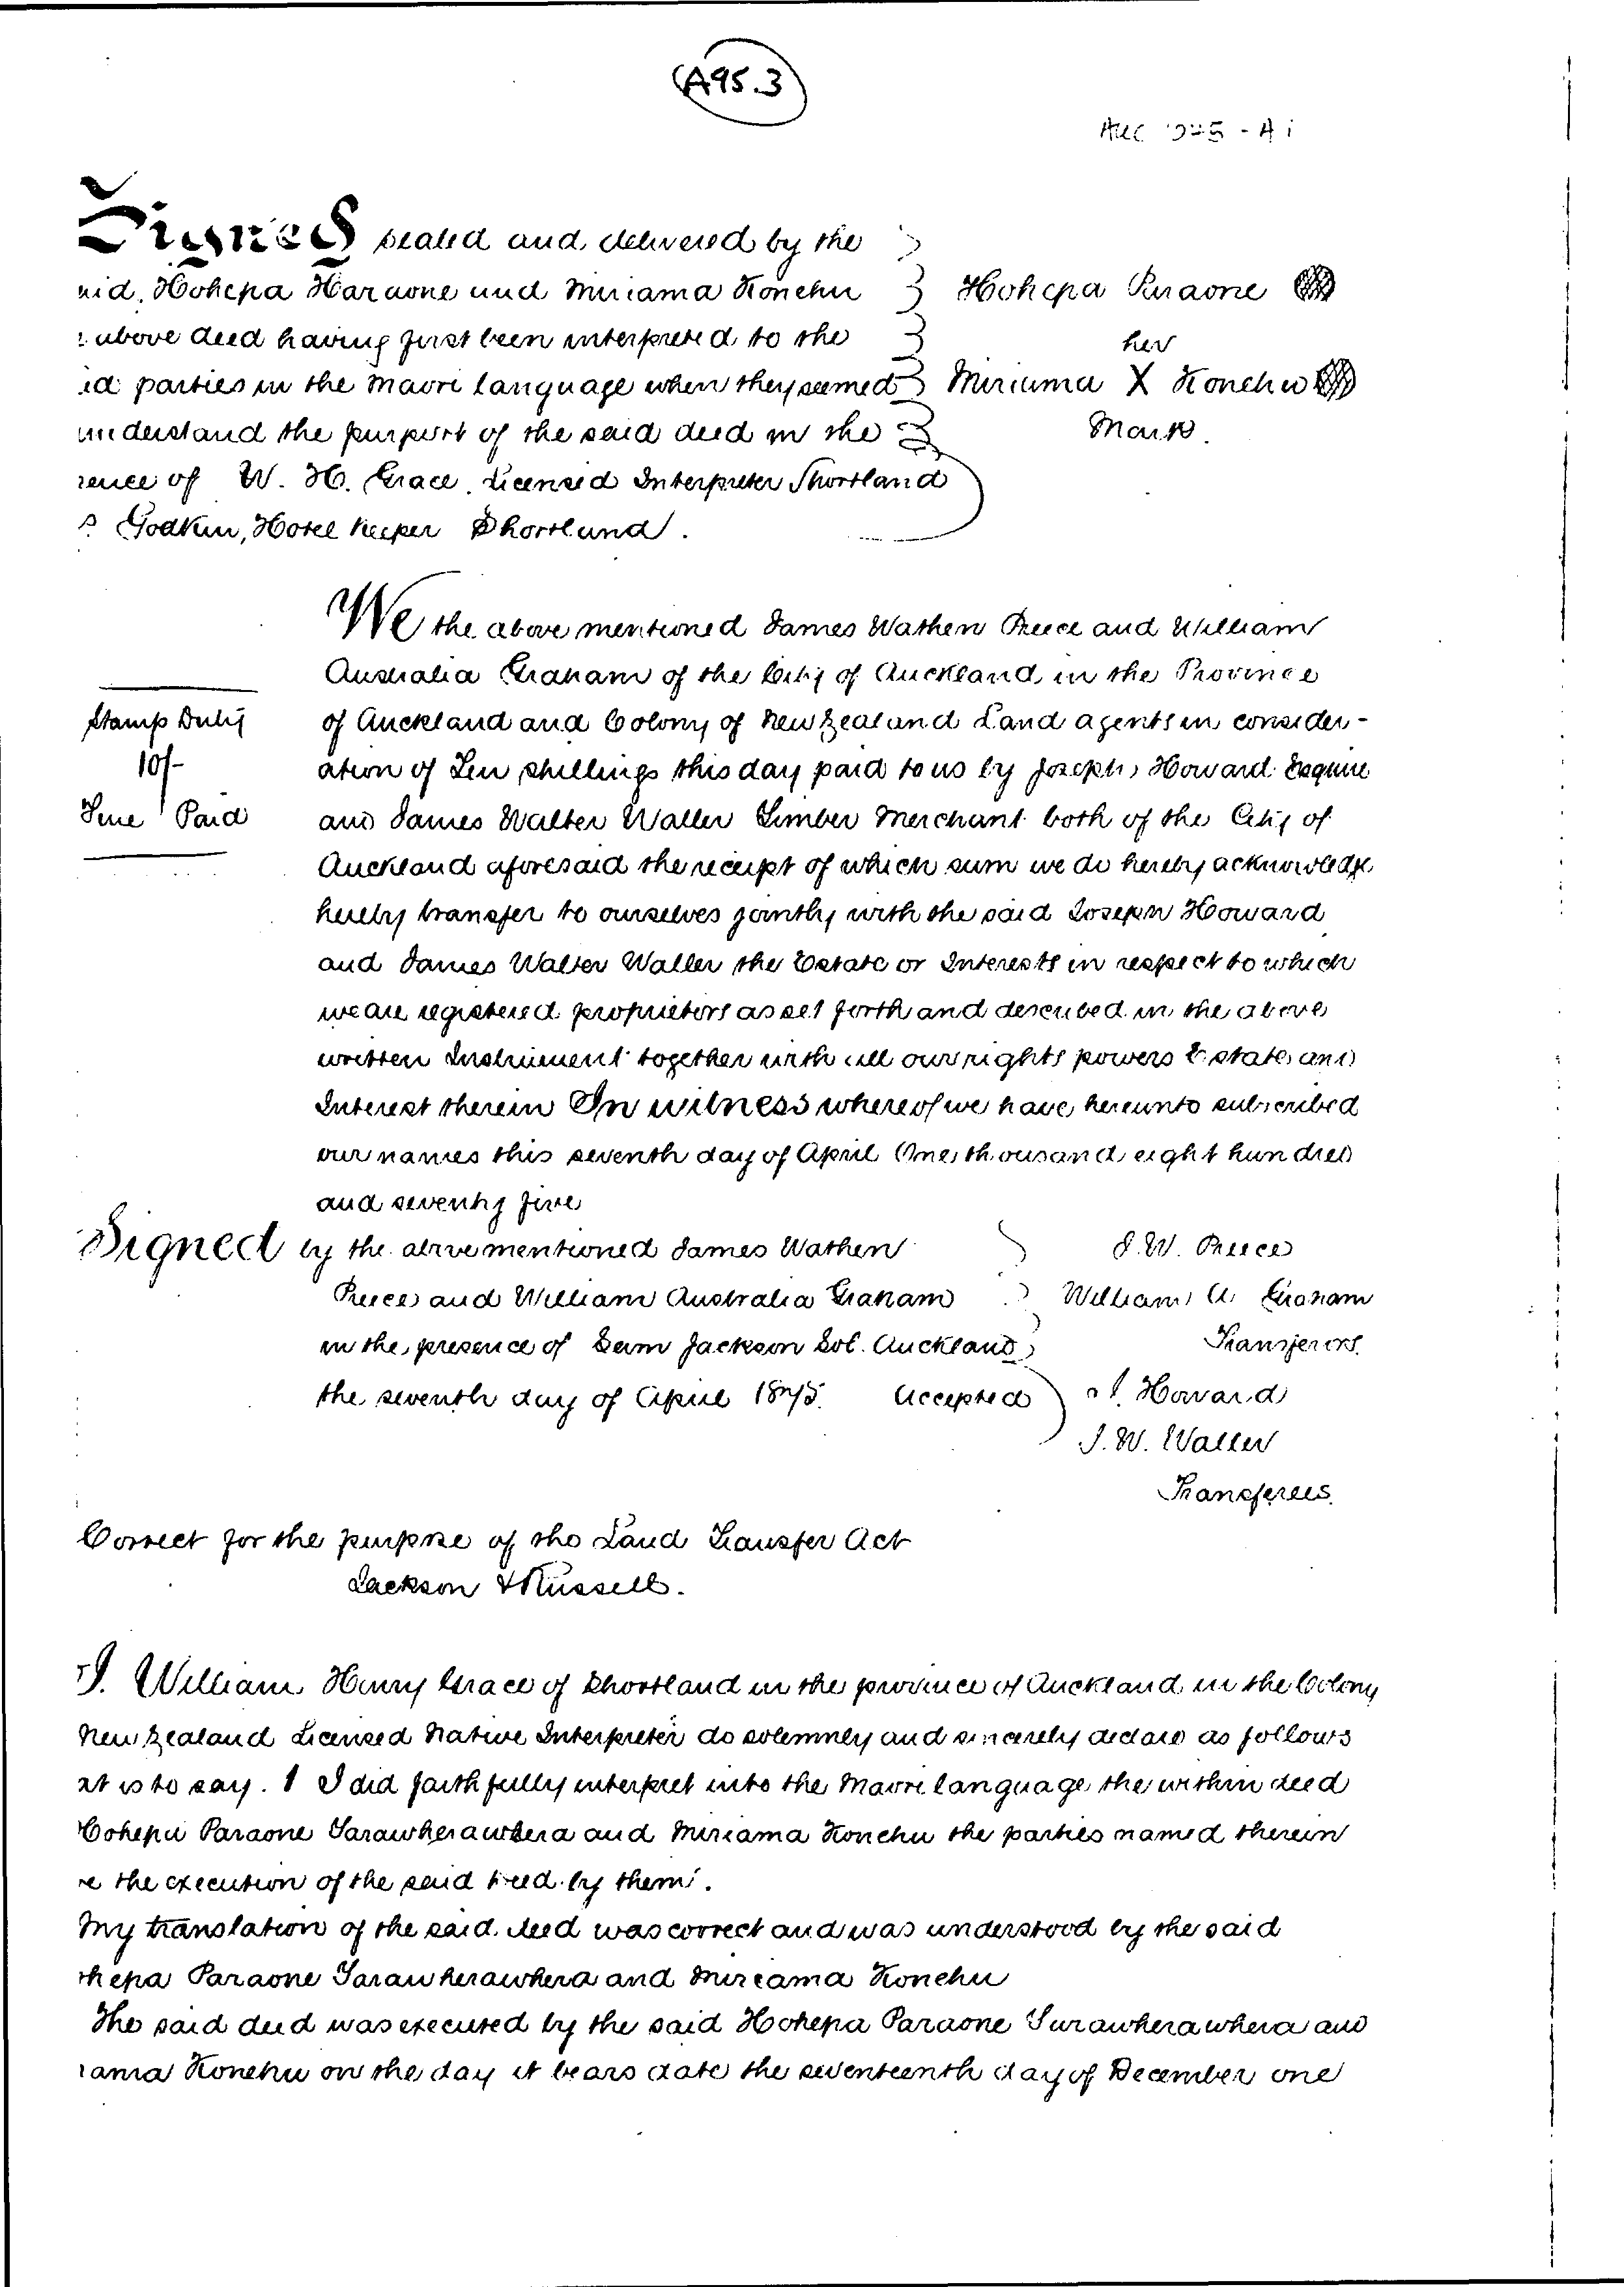 A95.3
Signed sealed and delivered by the
aid, Hohepa Haraone and Miriama Konehu Hohepa Paraone
above deed having first been interpreted to the her
id parties in the Maori language when they seemed Miriama X Konehu
understand the purport of the said deed in the Mark.
rence of W. H. Grace. Licensed Interpreter Shortland
s Godkin, Hotel Keeper Shortland.
We the above mentioned James Wathen Preece and William
Australia Graham of the City of Auckland in the Province
Stamp Duty of Auckland and Colony of New Zealand Land agents in consider-
10/- ation of Ten shillings this day paid to us by Joseph Howard Esquire
Fine Paid and James Walter Waller Timber Merchant both of the City of
Auckland aforesaid the receipt of which sum we do hereby acknowledge
hereby transfer to ourselves jointly with the said Joseph Howard
and James Walter Waller the Estate or Interests in respect to which
we are registered proprietors as set forth and described in the above
written Instrument together with all our rights powers Estate and
Interest therein In witness whereof we have hereunto subscribed
our names this seventh day of April One thousand eight hundred
and seventy five
Signed by the above mentioned James Wathen J. W. Preece
Preece and William Australia Graham William A. Graham
in the presence of Jackson Sol. Auckland Transferors.
the seventh day of April 1875. Accepted J. Howard
J. W. Waller
Transferees.
Correct for the purpose of the Land Transfer Act
Jackson & Russell.
I. William Henry Grace of Shortland in the province of Auckland in the Colony
New Zealand Licensed Native Interpreter do solemnly and sincerely declare as follows
at is to say. 1 I did faithfully interpret into the Maori language the within deed
Hohepa Paraone Tarawherawhera and Miriama Konehu the parties named therein
re the execution of the said deed by them.
My translation of the said deed was correct and was understood by the said
hepa Paraone Tarawherawhera and Miriama Konehu
The said deed was executed by the said Hohepa Paraone Tarawherawhera and
iama Konehu on the day it bears date the seventeenth day of December one